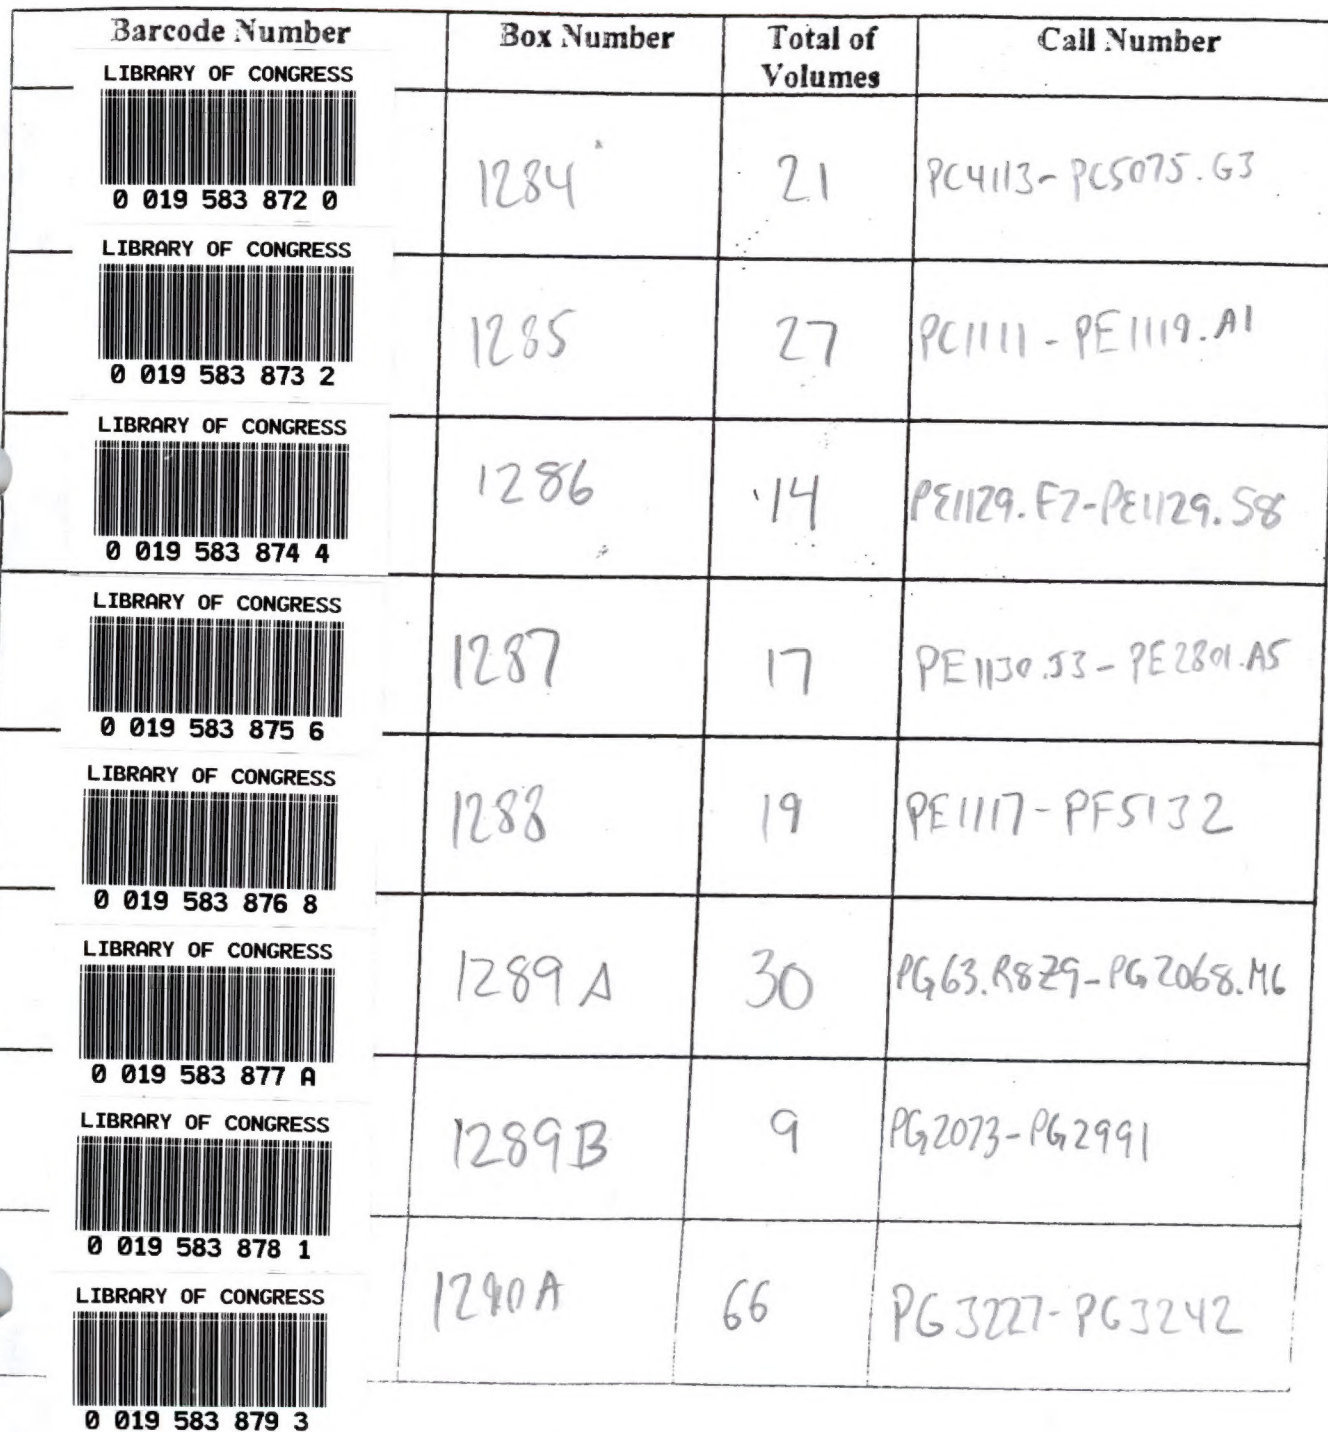 Barcode Number Box Number Total of Volumes Call Number
LIBRARY OF CONGRESS
0 019 583 872 0 1284 21 PC4113-PC5075.G3
LIBRARY OF CONGRESS
0 019 583 873 2 1285 27 PC1111-PE1119.A1
LIBRARY OF CONGRESS
0 019 583 874 4 1286 14 PE1129.F7-PE1129.S8
LIBRARY OF CONGRESS
0 019 583 875 6 1287 17 PE1130.J3-PE2801.A5
LIBRARY OF CONGRESS
0 019 583 876 8 1288 19 PE1117-PF5132
LIBRARY OF CONGRESS
0 019 583 877 A 1289A 30 PG63.R8Z9-PG2068.M6
LIBRARY OF CONGRESS
0 019 583 878 1 1289B 9 PG2073-PG2991
LIBRARY OF CONGRESS
0 019 583 879 3 1290A 66 PG3227-PG3242